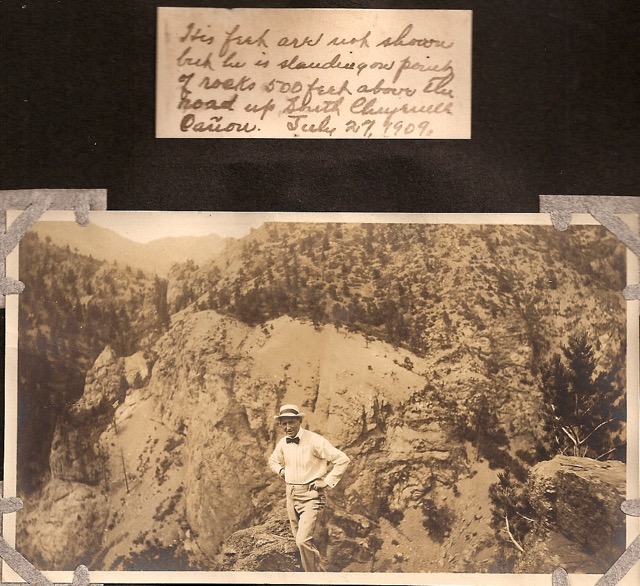 His feet are not shown
but he is standing on point
of rocks 500 feet above the
road up South Cheyenne
Cañon. July 27, 1909.